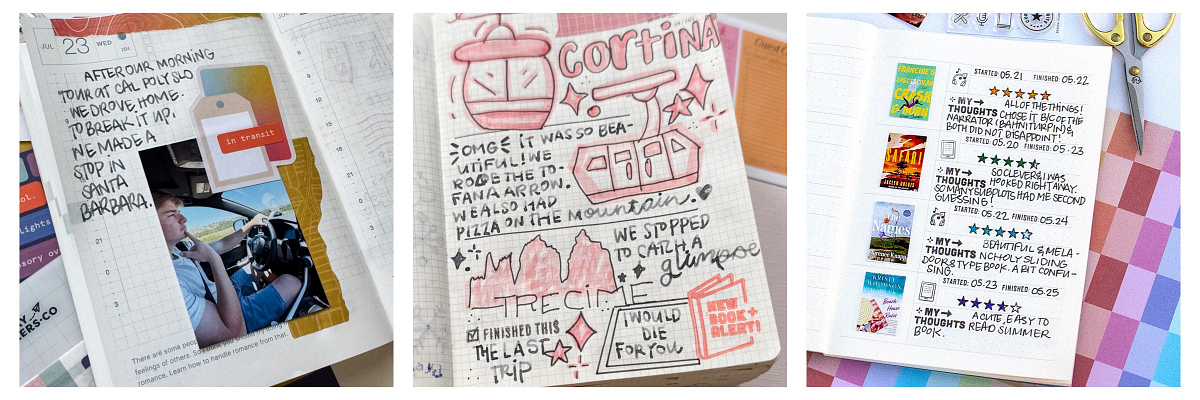 JUL 23 WED
204
AFTER OUR MORNING
TOUR AT CAL POLY SLO
WE DROVE HOME.
TO BREAK IT UP,
WE MADE A
STOP IN
SANTA
BARBARA.
in transit
There are some peop
feelings of others. So
romance. Learn how to handle romance from that.
CORTINA
OMG IT WAS SO BEA-
UTIFUL! WE
RODE THE TO-
FANA ARROW.
WE ALSO HAD
PIZZA ON THE mountain.
WE STOPPED
TO CATCH A
glimpse
TRECIME
FINISHED THIS
THE LAST
TRIP
I WOULD
DIE
FOR YOU
NEW
BOOK
ALERT!
STARTED: 05.21 FINISHED: 05.22
MY
THOUGHTS
ALL OF THE THINGS!
CHOSE IT B/C OF THE
NARRATOR (BAHNI TURPIN) &
BOTH DID NOT DISAPPOINT!
STARTED: 05.20 FINISHED: 05.23
MY
THOUGHTS
SO CLEVER & I WAS
HOOKED RIGHT AWAY.
SO MANY SUBPLOTS HAD ME SECOND
GUESSING!
STARTED: 05.22 FINISHED: 05.24
MY
THOUGHTS
BEAUTIFUL & MELA-
NCHOLY SLIDING
DOORS TYPE BOOK. A BIT CONFU-
SING.
STARTED: 05.23 FINISHED: 05.25
MY
THOUGHTS
A CUTE, EASY TO
READ SUMMER
BOOK.
FRANCINE'S
SPECTACULAR
CRASH
& BURN
SAFARI
Names